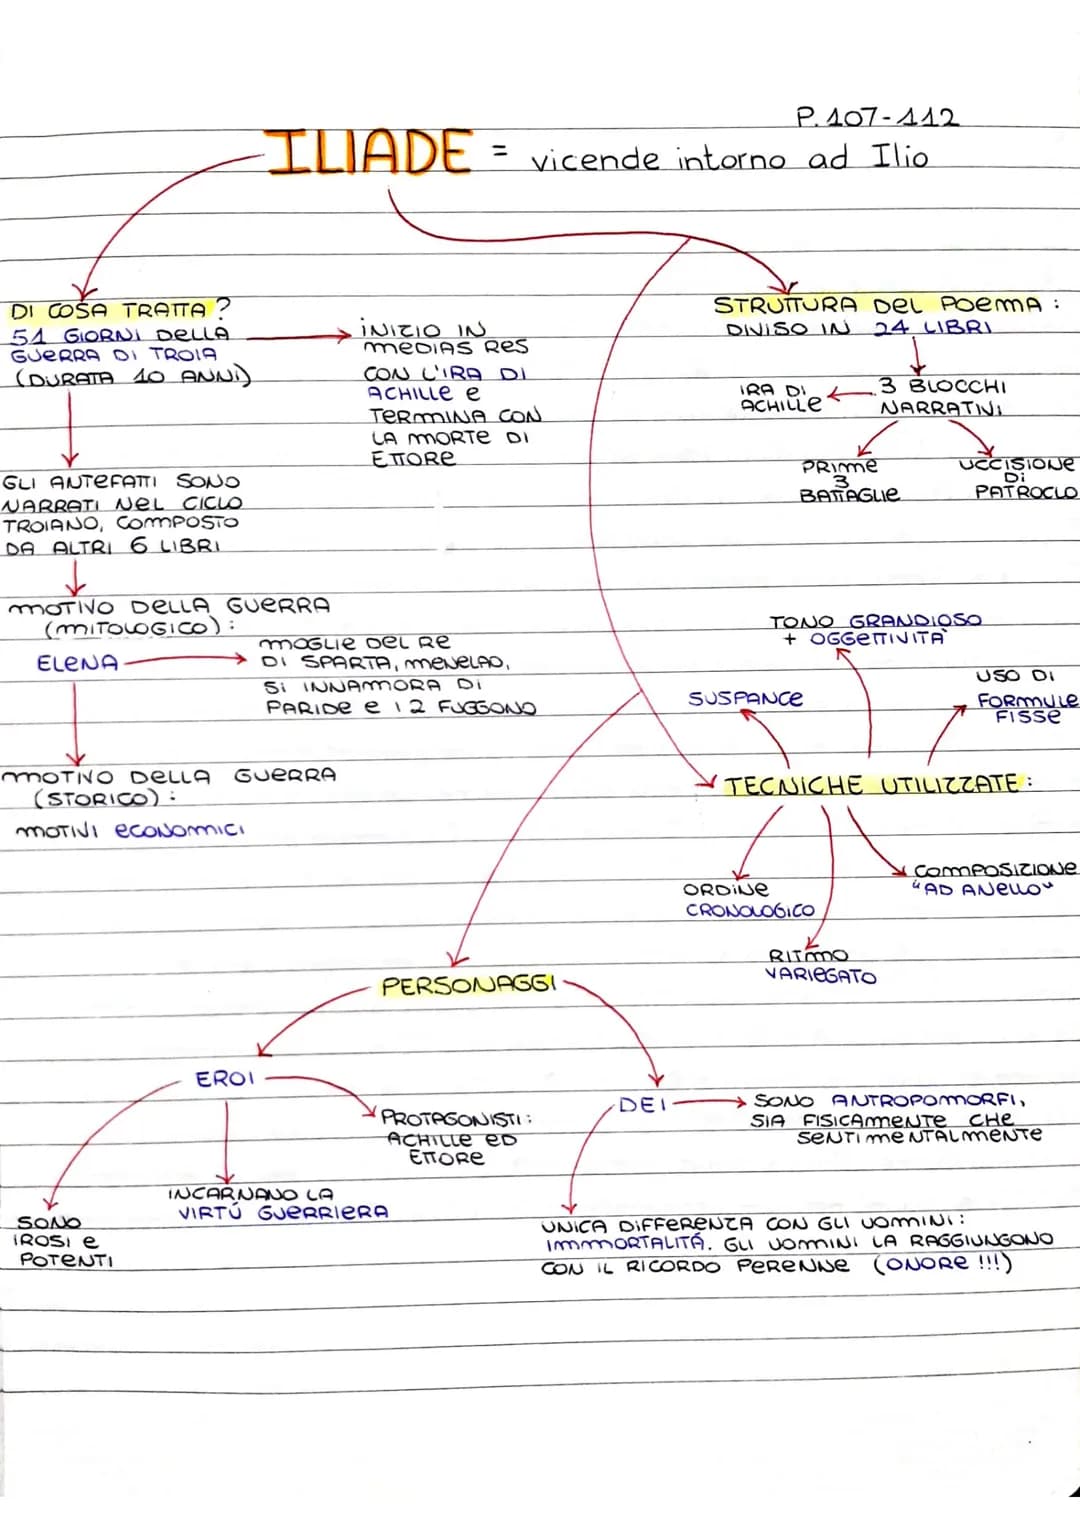 P. 107-112
ILIADE = vicende intorno ad Ilio
DI COSA TRATTA?
51 GIORNI DELLA
GUERRA DI TROIA
(DURATA 10 ANNI)
INIZIO IN
MEDIAS RES
CON L'IRA DI
ACHILLE E
TERMINA CON
LA MORTE DI
ETTORE
GLI ANTEFATTI SONO
NARRATI NEL CICLO
TROIANO, COMPOSTO
DA ALTRI 6 LIBRI
MOTIVO DELLA GUERRA
(MITOLOGICO):
ELENA
MOGLIE DEL RE
DI SPARTA, MENELAO,
SI INNAMORA DI
PARIDE E I 2 FUGGONO
MOTIVO DELLA GUERRA
(STORICO):
MOTIVI ECONOMICI
STRUTTURA DEL POEMA:
DIVISO IN 24 LIBRI
3 BLOCCHI
NARRATIVI
IRA DI
ACHILLE
PRIME
3
BATTAGLIE
UCCISIONE
DI
PATROCLO
TONO GRANDIOSO
+ OGGETTIVITÀ
SUSPANCE
USO DI
FORMULE
FISSE
TECNICHE UTILIZZATE:
ORDINE
CRONOLOGICO
RITMO
VARIEGATO
COMPOSIZIONE
"AD ANELLO"
PERSONAGGI
EROI
PROTAGONISTI:
ACHILLE ED
ETTORE
INCARNANO LA
VIRTÚ GUERRIERA
SONO
IROSI E
POTENTI
DEI
SONO ANTROPOMORFI,
SIA FISICAMENTE CHE
SENTIMENTALMENTE
UNICA DIFFERENZA CON GLI UOMINI:
IMMORTALITÁ. GLI UOMINI LA RAGGIUNGONO
CON IL RICORDO PERENNE (ONORE !!!)